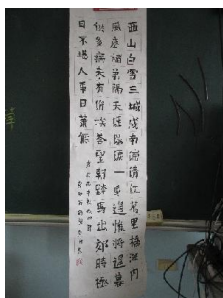 西山白雪三城戍南浦清江萬里橋海內
風塵諸弟隔天涯涕淚一身遙惟將遲暮
供多病未有涓埃答聖朝跨馬出郊時極
目不堪人事日蕭條